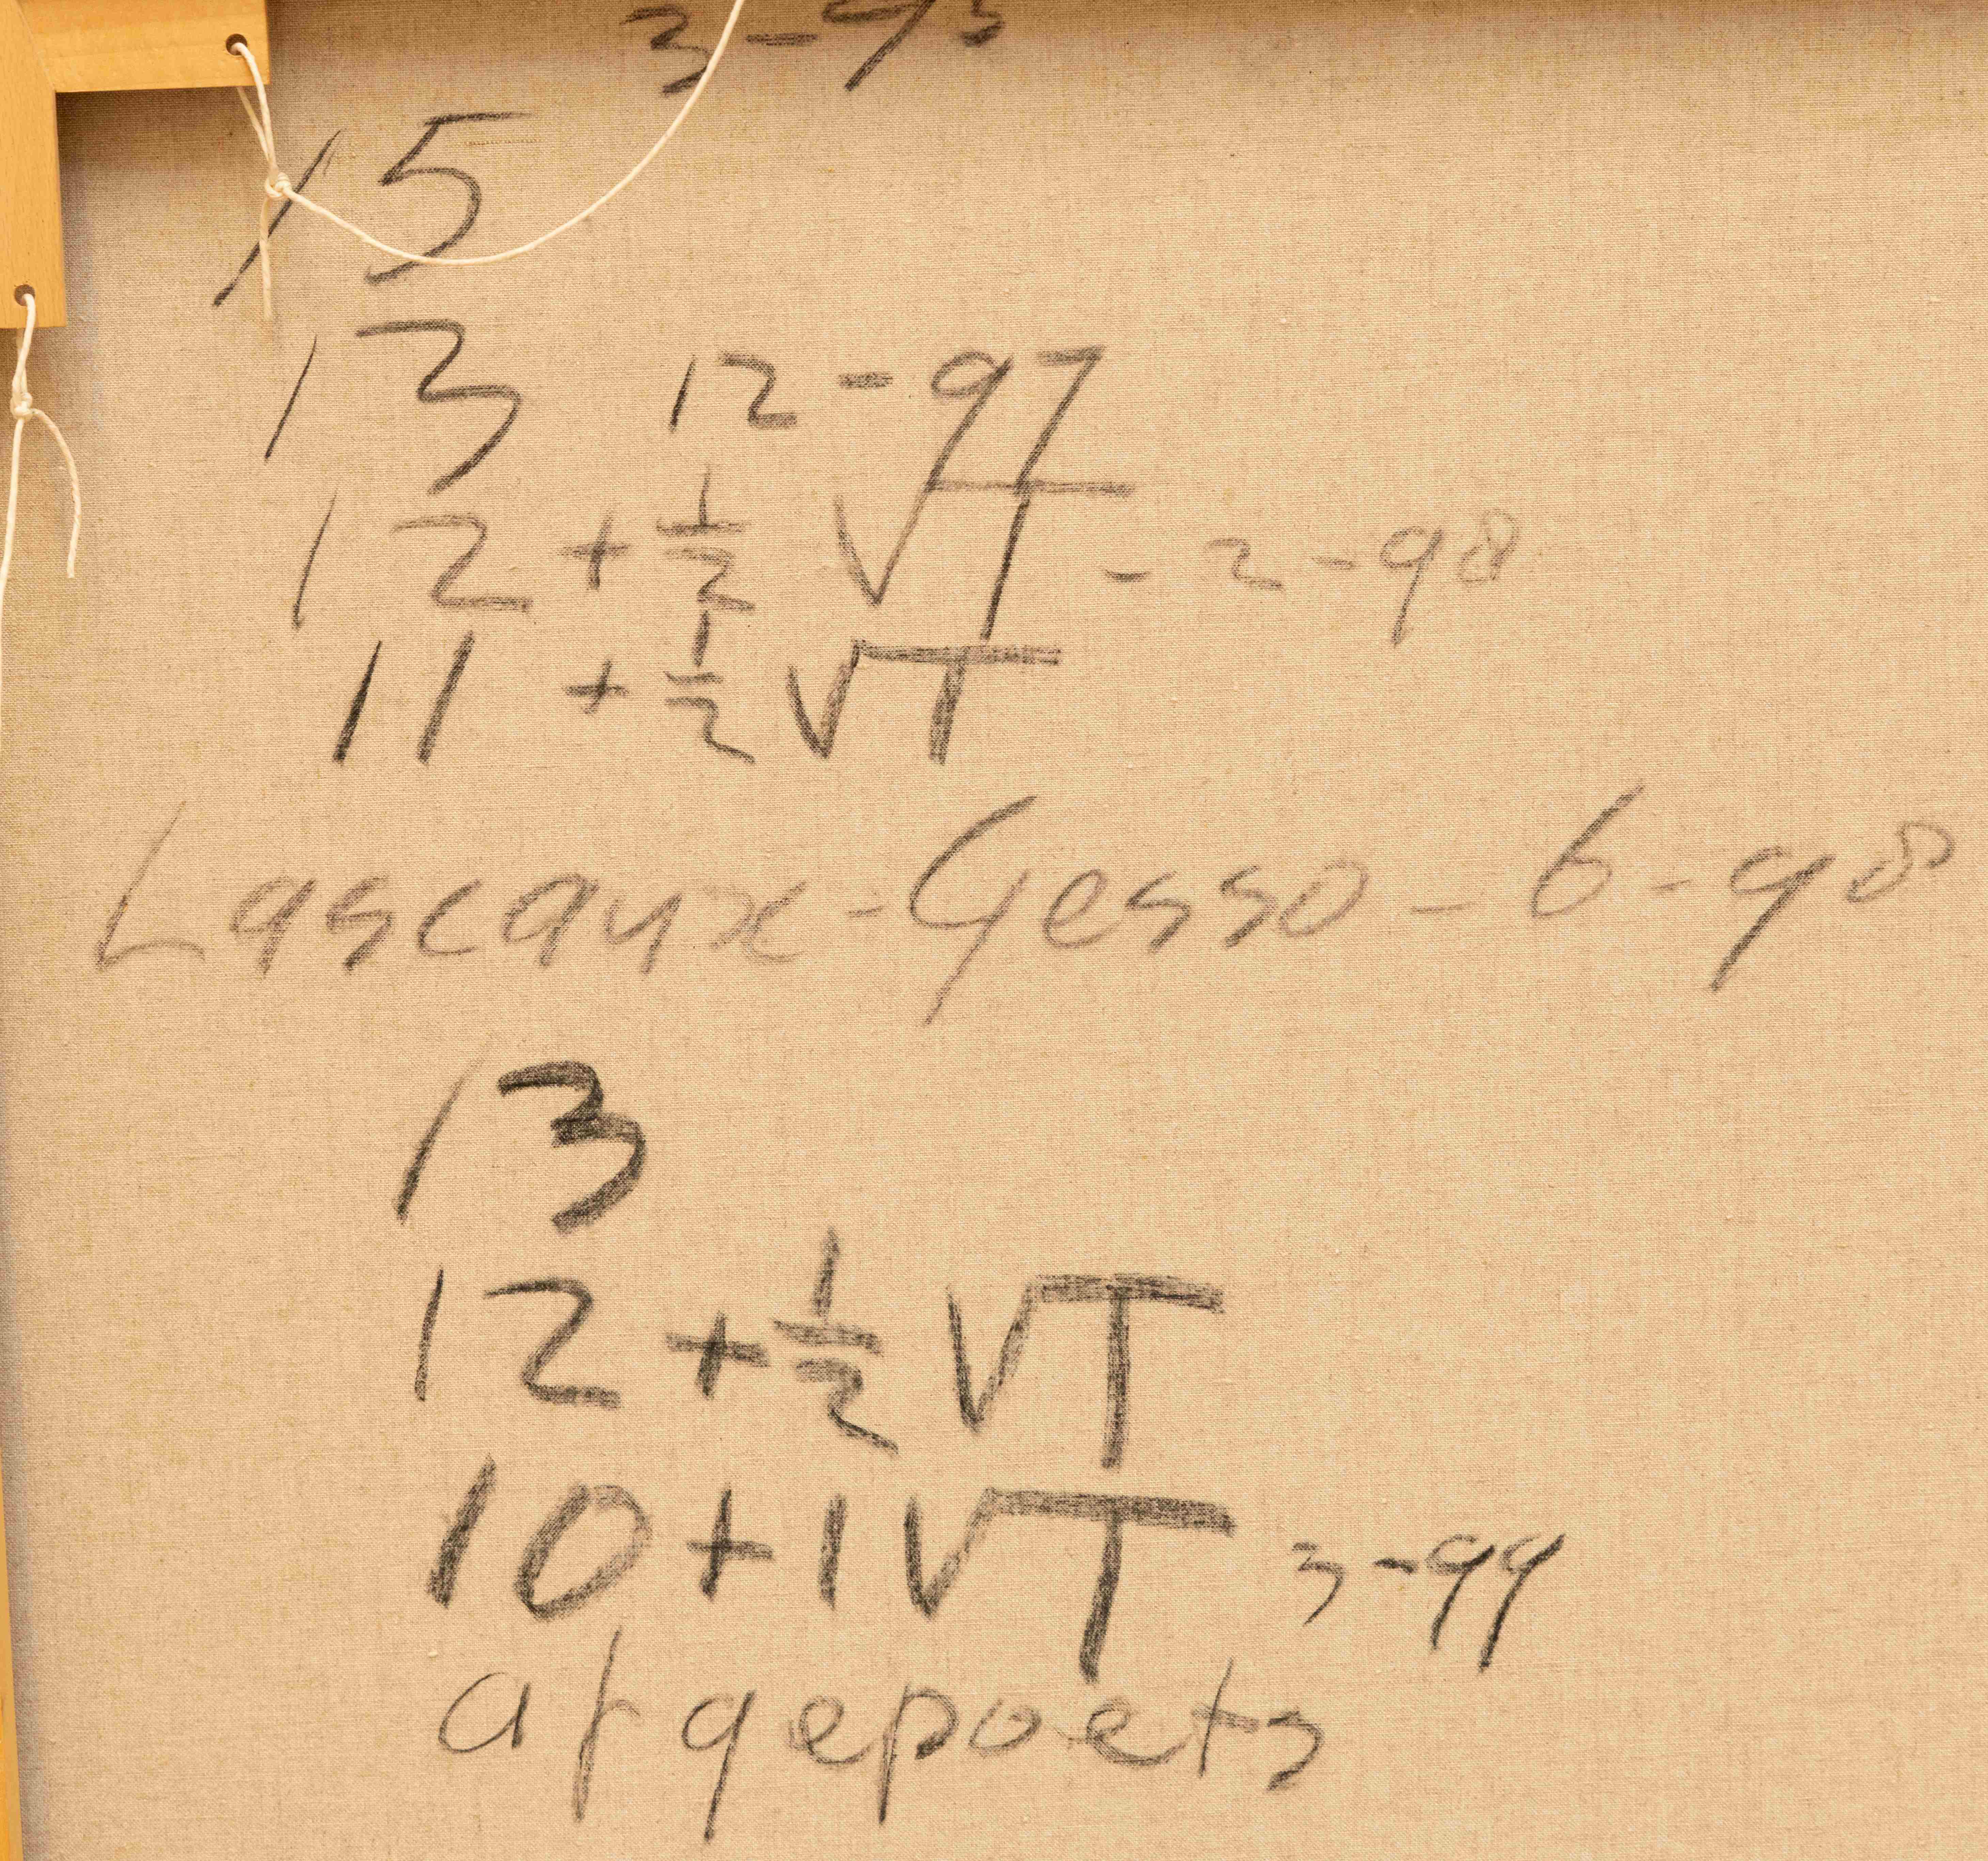 3-95
15
13 12-97
12 + 1/2 √T - 2-98
11 + 1/2 √T
Lascaux-Gesso-6-98
13
12 + 1/2 √T
10 + 1 √T 3-99
afgepoets